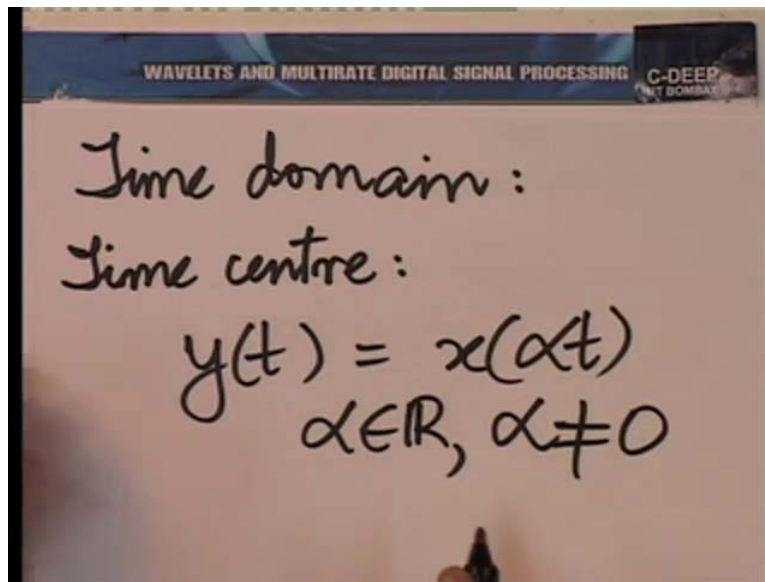 WAVELETS AND MULTIRATE DIGITAL SIGNAL PROCESSING
C-DEEP
IIT BOMBAY
Time domain:
Time centre:
y(t) = x(αt)
α∈ℝ, α≠0